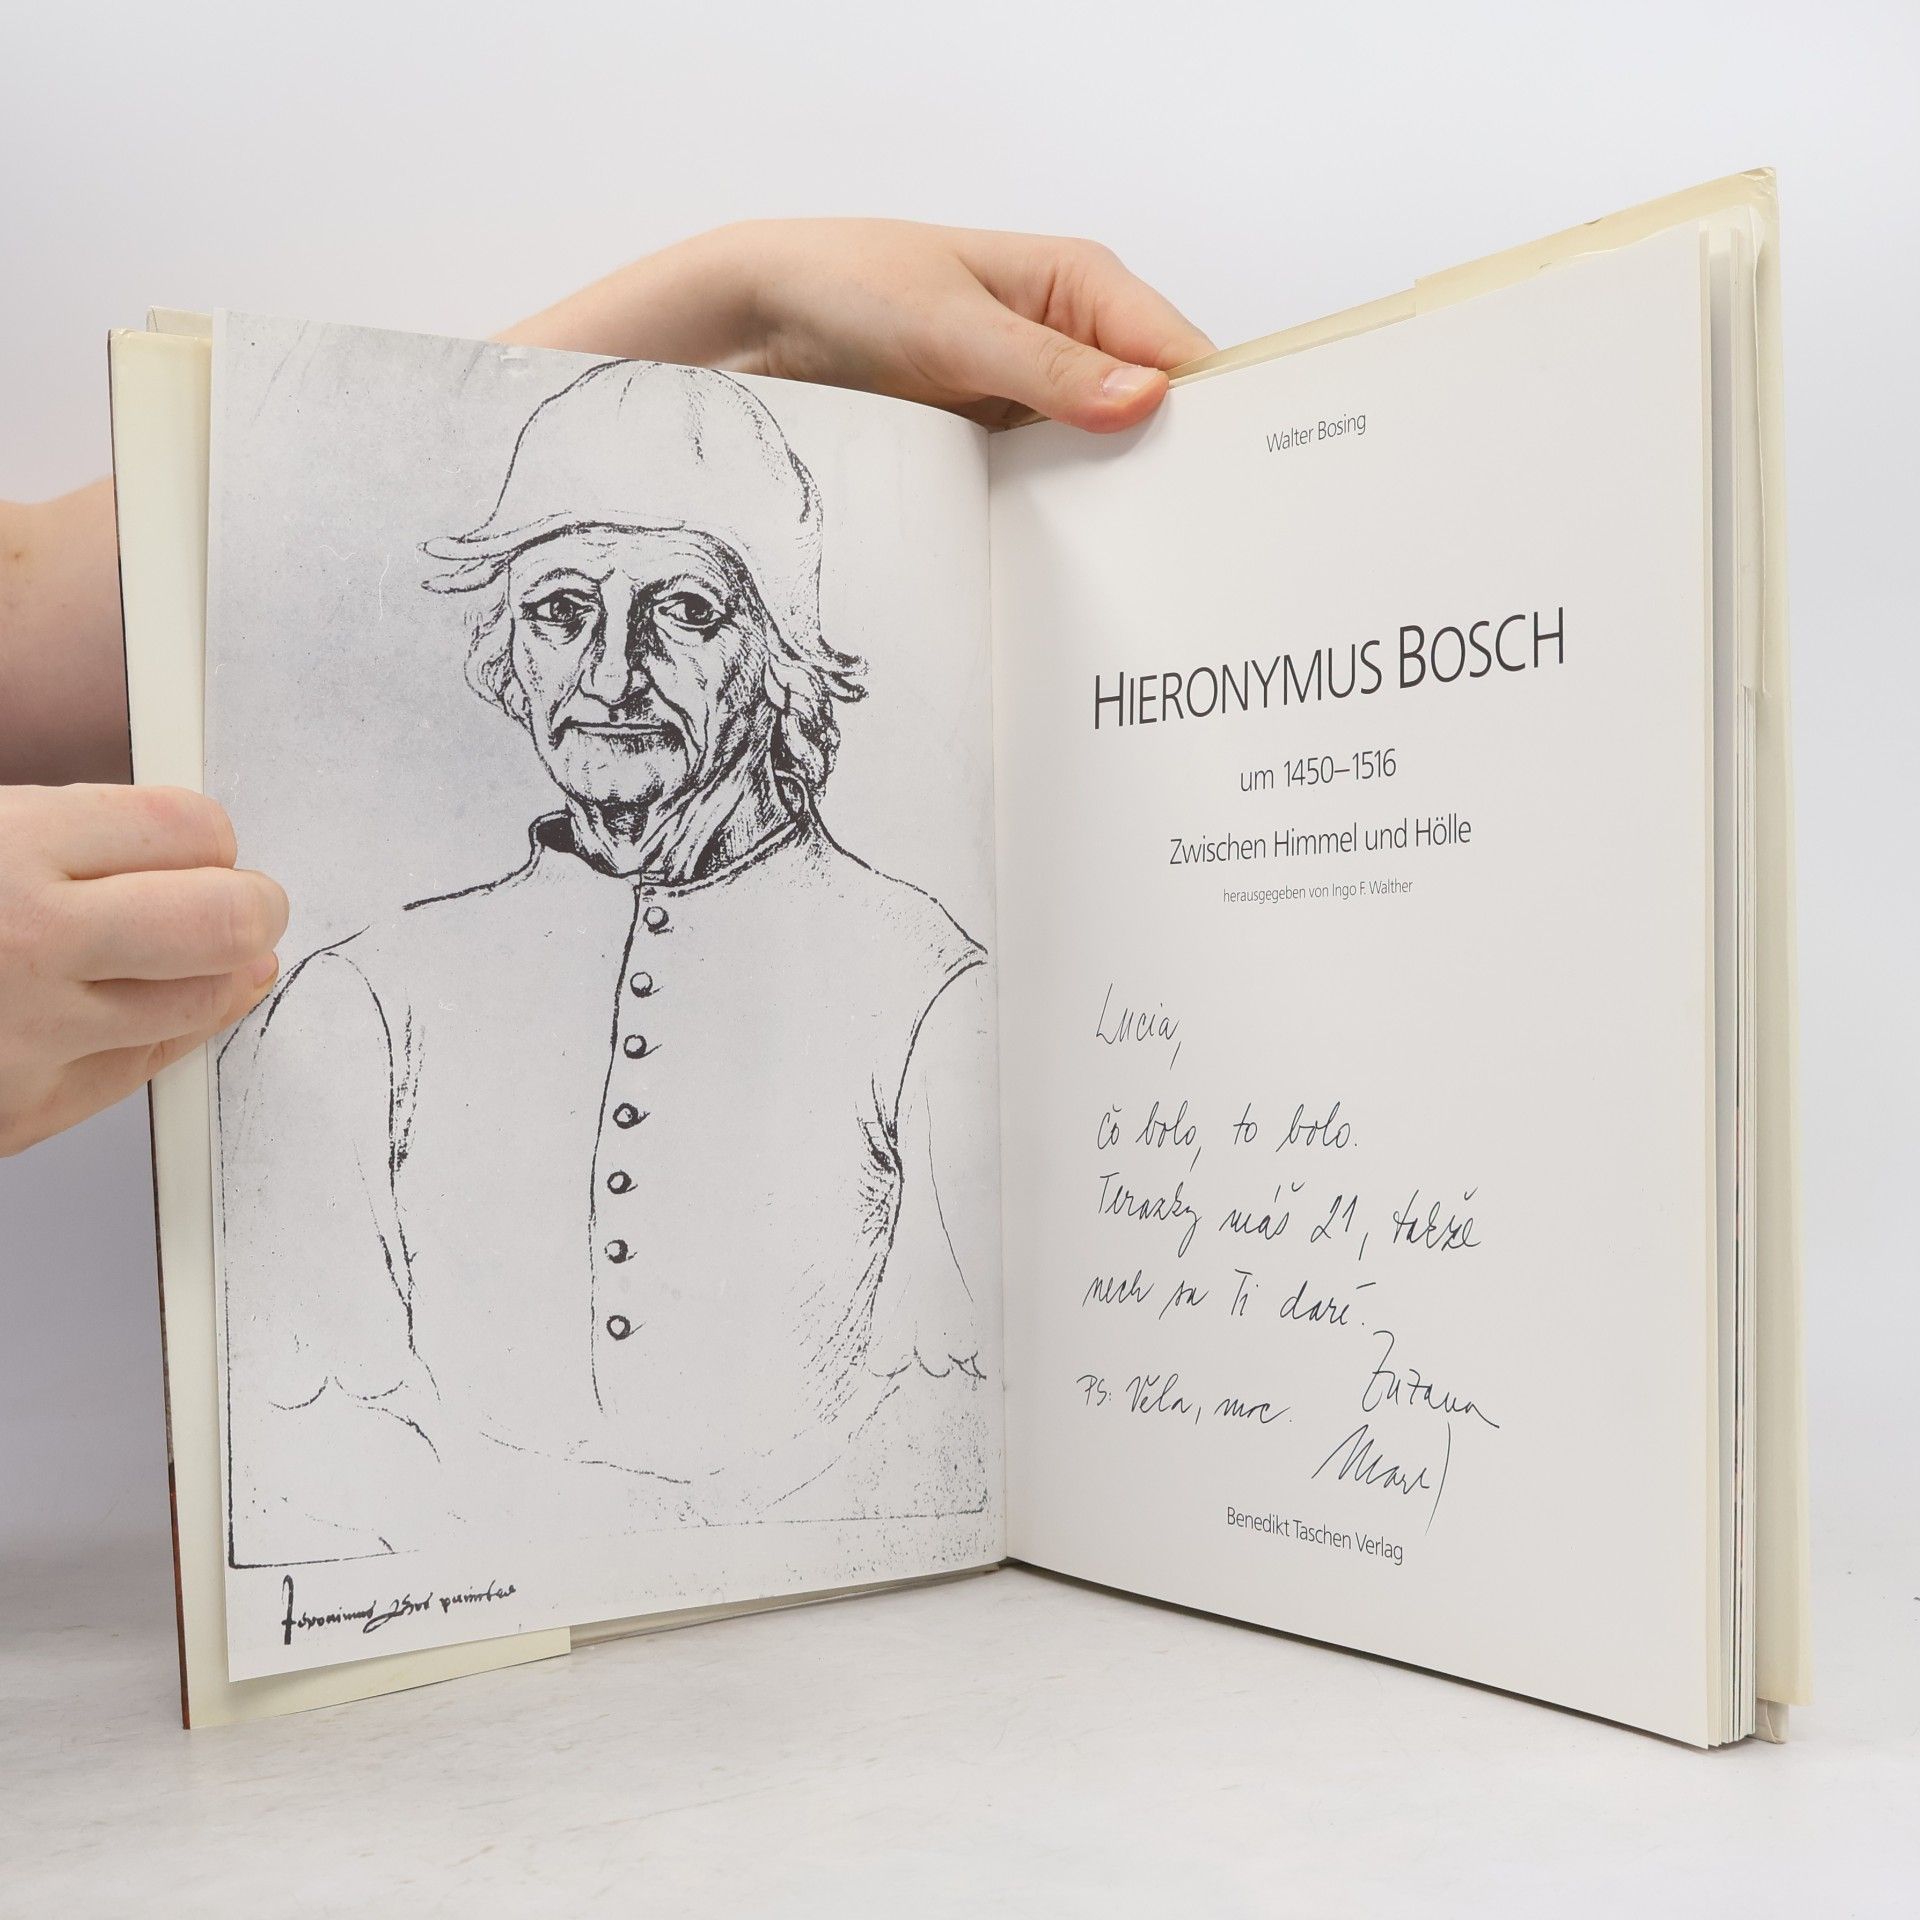 Jeronimus Bos pinntre
Walter Bosing
HIERONYMUS BOSCH
um 1450–1516
Zwischen Himmel und Hölle
herausgegeben von Ingo F. Walther
Lucia,
čo bolo, to bolo.
Terazky máš 21, takže
nech sa Ti darí.
PS: Veľa, moc.
Zuzana
Benedikt Taschen Verlag